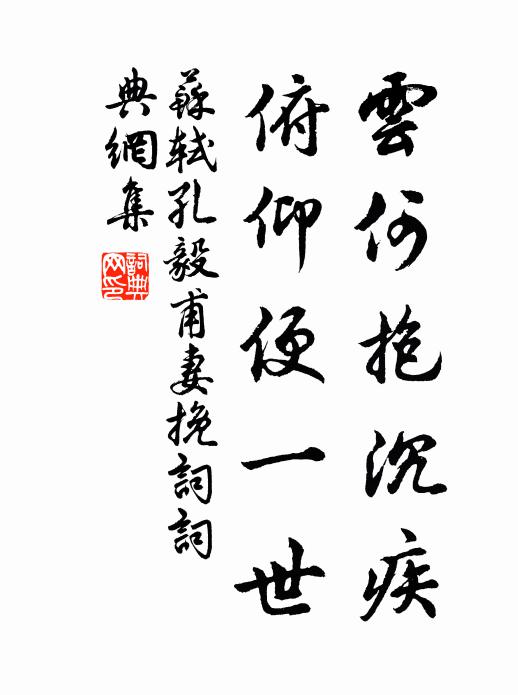 雲何抱沉疾
俯仰便一世
蘇軾孔毅甫妻挽詞詞
典網集
詞典
网印